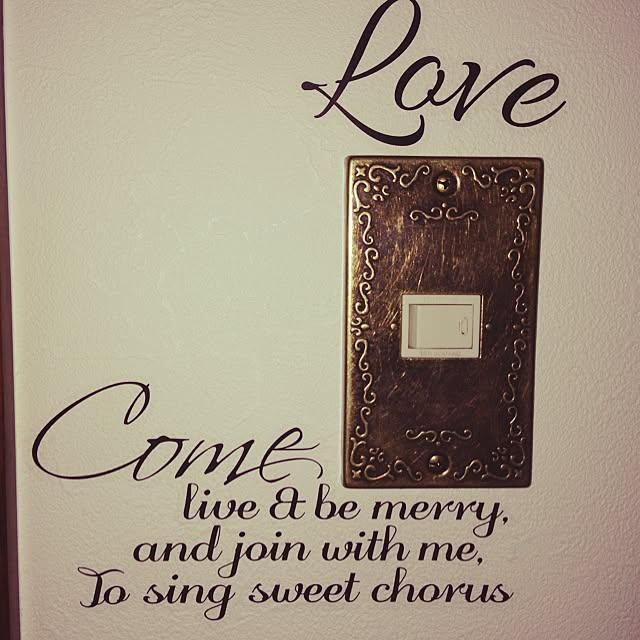 Love
Come
live & be merry,
and join with me,
To sing sweet chorus